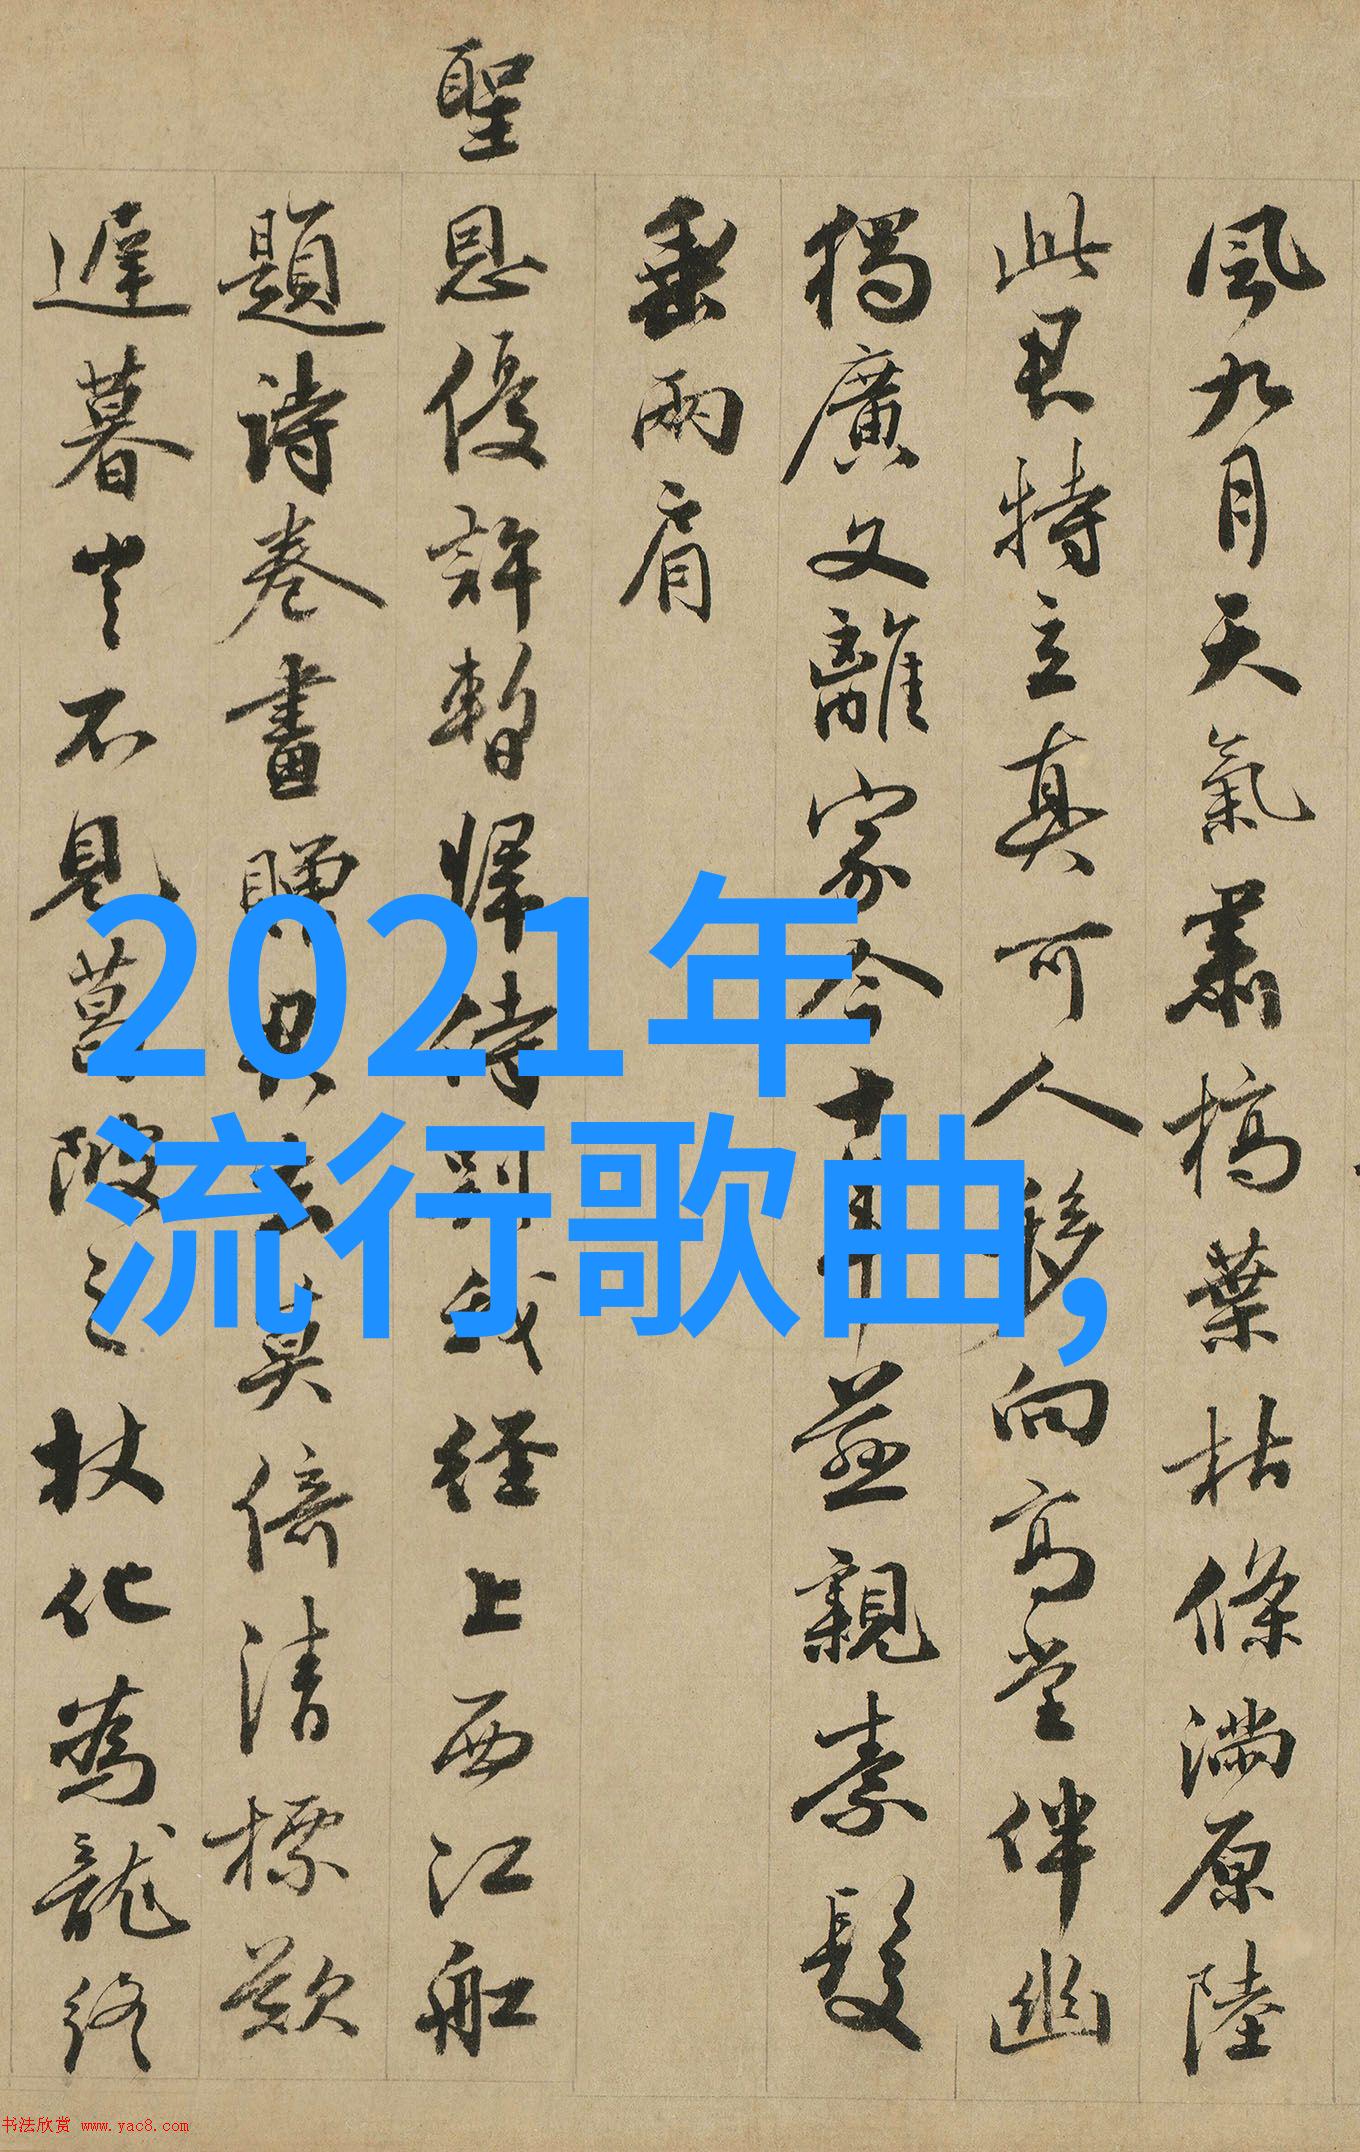 風九月天氣肅槁葉枯條滿原陸
此君特立真可人移向高堂伴幽
獨廣文離家今十年並親素髮
垂兩肩
聖恩優許暫歸侍別我經上西江船
題詩卷畫贈君去莫倍清標歎
遲暮豈不見葛陂之杖化為龍終
2021年
流行歌曲,
书法欣赏 www.yac8.com